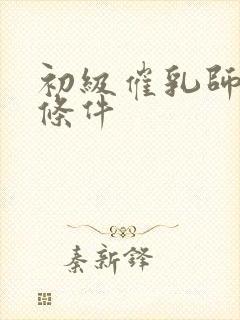 初級催乳師
條件
秦新鋒